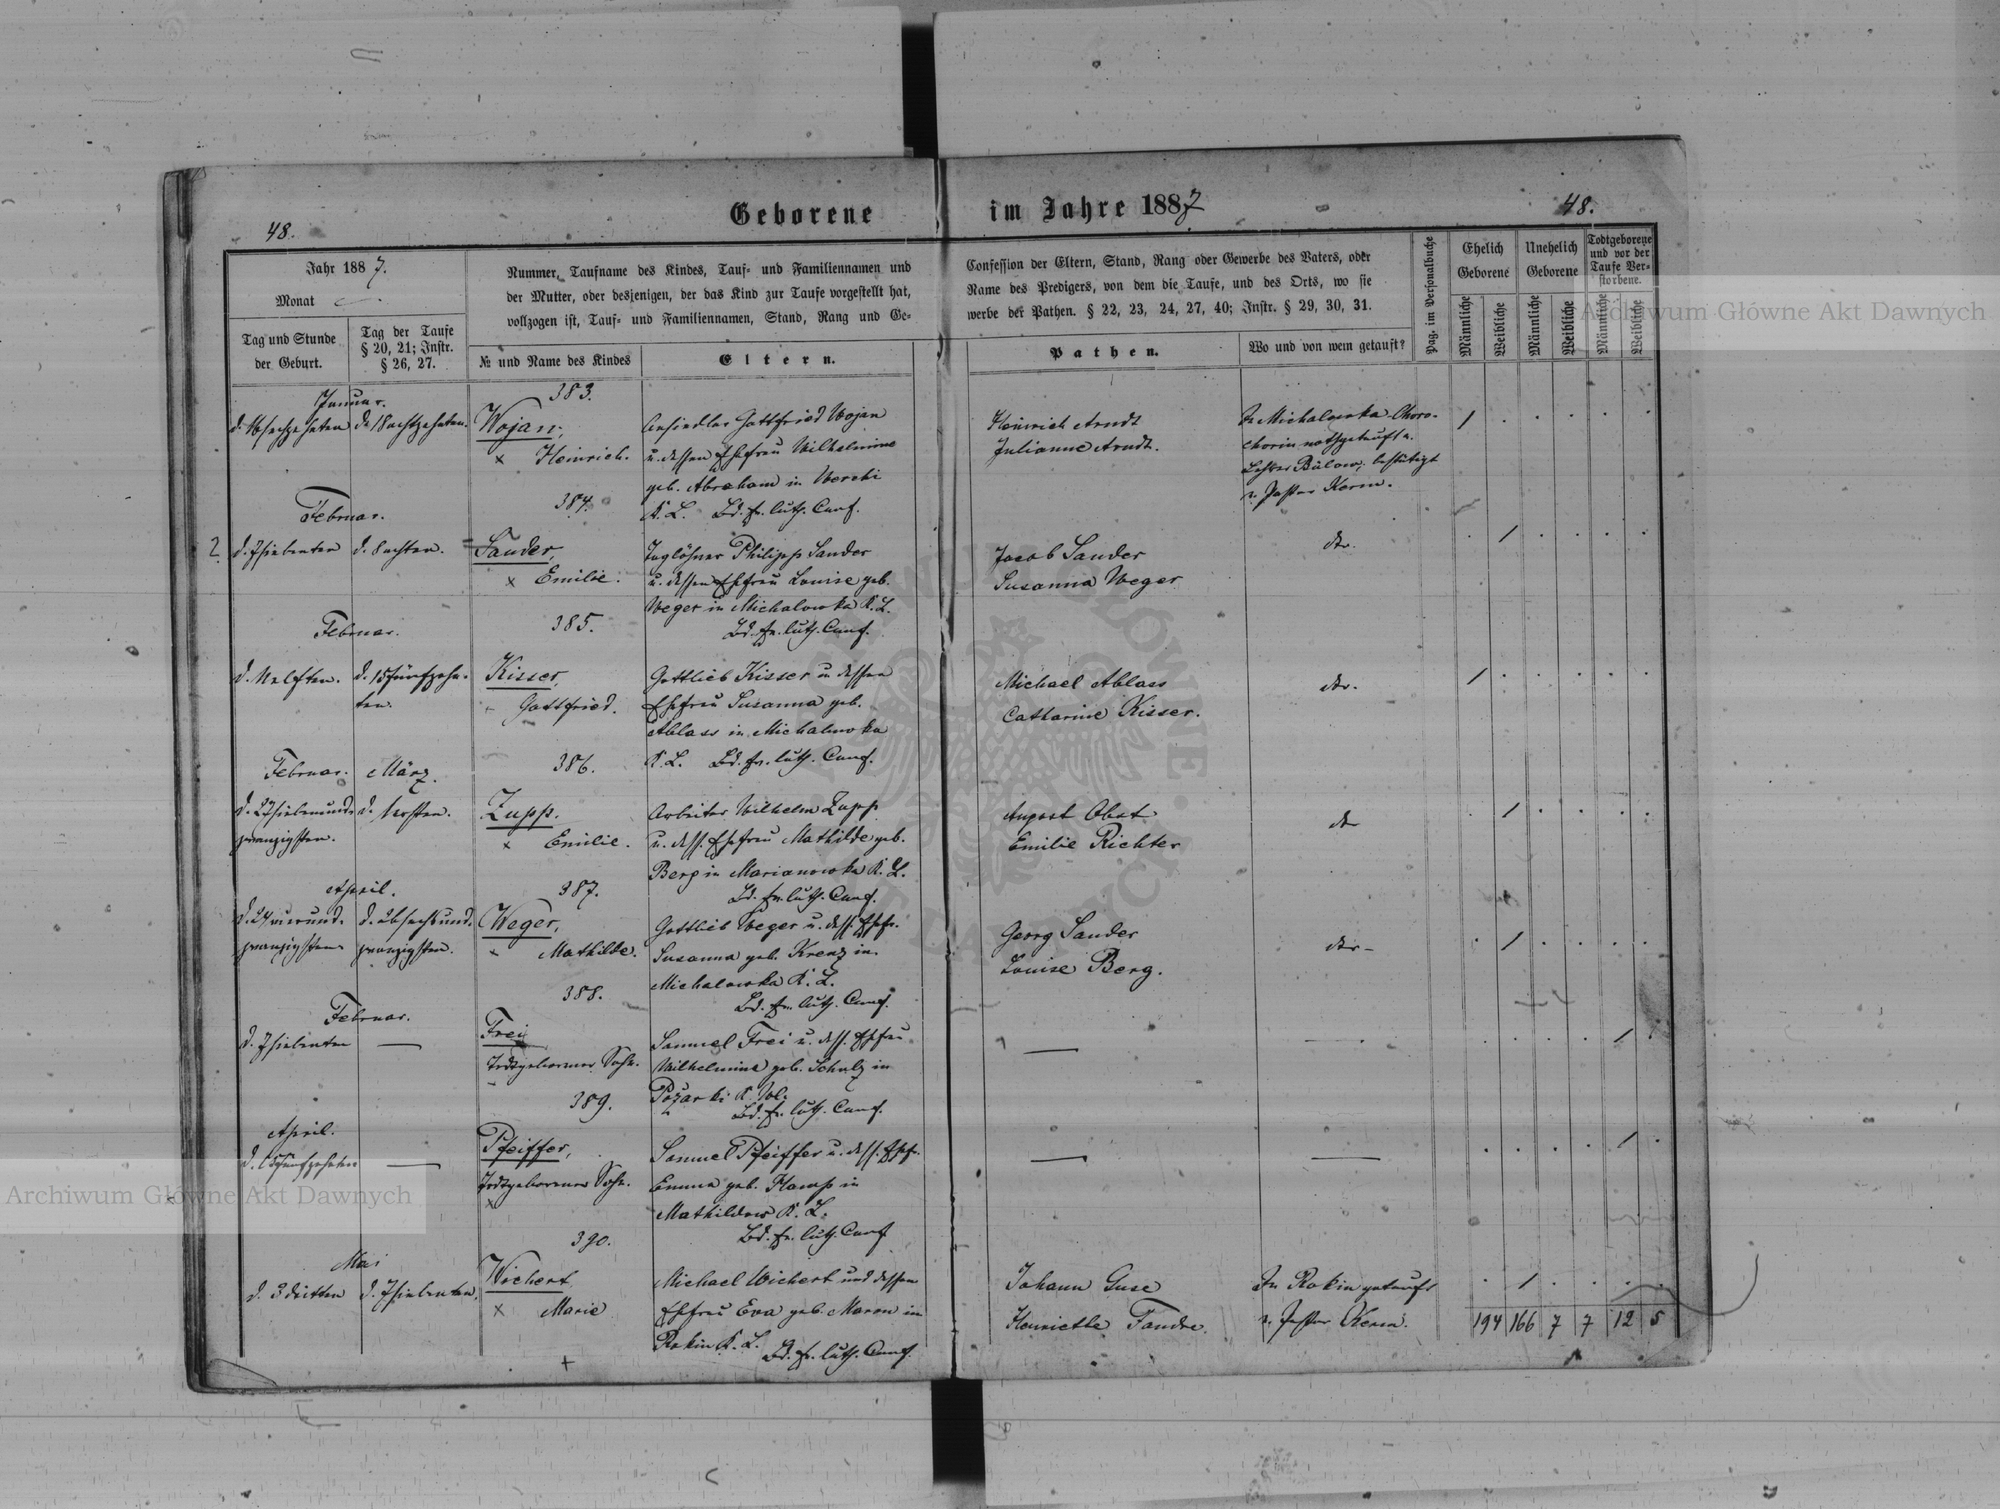 48.
Geborene im Jahre 1887
48.
Jahr 1887.
Monat
Tag und Stunde
der Geburt.
Tag der Taufe
§ 20, 21; Instr.
§ 26, 27.
Nummer, Taufname des Kindes, Tauf- und Familiennamen und
der Mutter, oder desjenigen, der das Kind zur Taufe vorgestellt hat,
vollzogen ist, Tauf- und Familiennamen, Stand, Rang und Ge-
№ und Name des Kindes
Eltern.
Confession der Eltern, Stand, Rang oder Gewerbe des Vaters, oder
Name des Predigers, von dem die Taufe, und des Orts, wo sie
werbe der Pathen. § 22, 23, 24, 27, 40; Instr. § 29, 30, 31.
Pathen.
Wo und von wem getauft?
Pag. im Personalbuche
Ehelich
Geborene
Unehelich
Geborene
Todtgeborene
und vor der
Taufe Ver-
storbene.
Männliche
Weibliche
Männliche
Weibliche
Männliche
Weibliche
Januar.
383.
d. 16 sechzehnten
d. 18 achtzehnten.
Wojan,
Heinrich.
Ansiedler Gottfried Wojan
u. dessen Ehefrau Wilhelmine
geb. Abraham in Werchi
K. L. Bd. ev. luth. Conf.
Heinrich Arndt
Julianne Arndt.
In Michalowka Choro-
chorin nothgetauft v.
Lehrer Bülow; bestätigt
v. Pastor Kerm.
Februar.
384.
2
d. 7 siebenten
d. 8 achten.
Sander,
Emilie.
Taglöhner Philipp Sander
u. dessen Ehefrau Louise geb.
Weger in Michalowka K. L.
Bd. ev. luth. Conf.
Jacob Sander
Susanna Weger
dto.
Februar.
385.
d. 11 elften.
d. 15 fünfzehn-
ten.
Kisser,
Gottfried.
Gottlieb Kisser u dessen
Ehefrau Susanna geb.
Ablass in Michalowka
K. L. Bd. ev. luth. Conf.
Michael Ablass
Catharine Kisser.
dto.
Februar. März.
386.
d. 27 siebenund-
zwanzigsten.
d. 1 ersten.
Zupp.
Emilie.
Arbeiter Wilhelm Zupp
u. dess. Ehefrau Mathilde geb.
Berg in Marianowka K. L.
Bd. ev. luth. Conf.
August Obst
Emilie Richter
dto
April.
387.
d. 24 vierund-
zwanzigsten
d. 26 sechsund-
zwanzigsten.
Weger,
Mathilde.
Gottlieb Weger u. dess. Ehefr.
Susanna geb. Krenz in
Michalowka K. L.
Bd. ev. luth. Conf.
Georg Sander
Louise Berg.
dto.
Februar.
388.
d. 7 siebenten
Frei
Todtgeborener Sohn.
Samuel Frei u. dess. Ehefrau
Wilhelmine geb. Schulz in
Pożarki K. Wol.
Bd. ev. luth. Conf.
April.
389.
d. 15 fünfzehnten
Pfeiffer,
Todtgeborener Sohn.
Samuel Pfeiffer u. dess. Ehefr.
Emma geb. Hamp in
Mathildow K. L.
Bd. ev. luth. Conf
Mai
390.
d. 3 dritten
d. 7 siebenten,
Wichert
Marie
Michael Wichert und dessen
Ehefrau Eva geb. Maron in
Rokin K. L.
Bd. ev. luth. Conf.
Johann Guse
Henriette Tandre.
In Rokin getauft
v. Pastor Kerm.
194 166 7 7 12 5
Archiwum Główne Akt Dawnych
Archiwum Główne Akt Dawnych